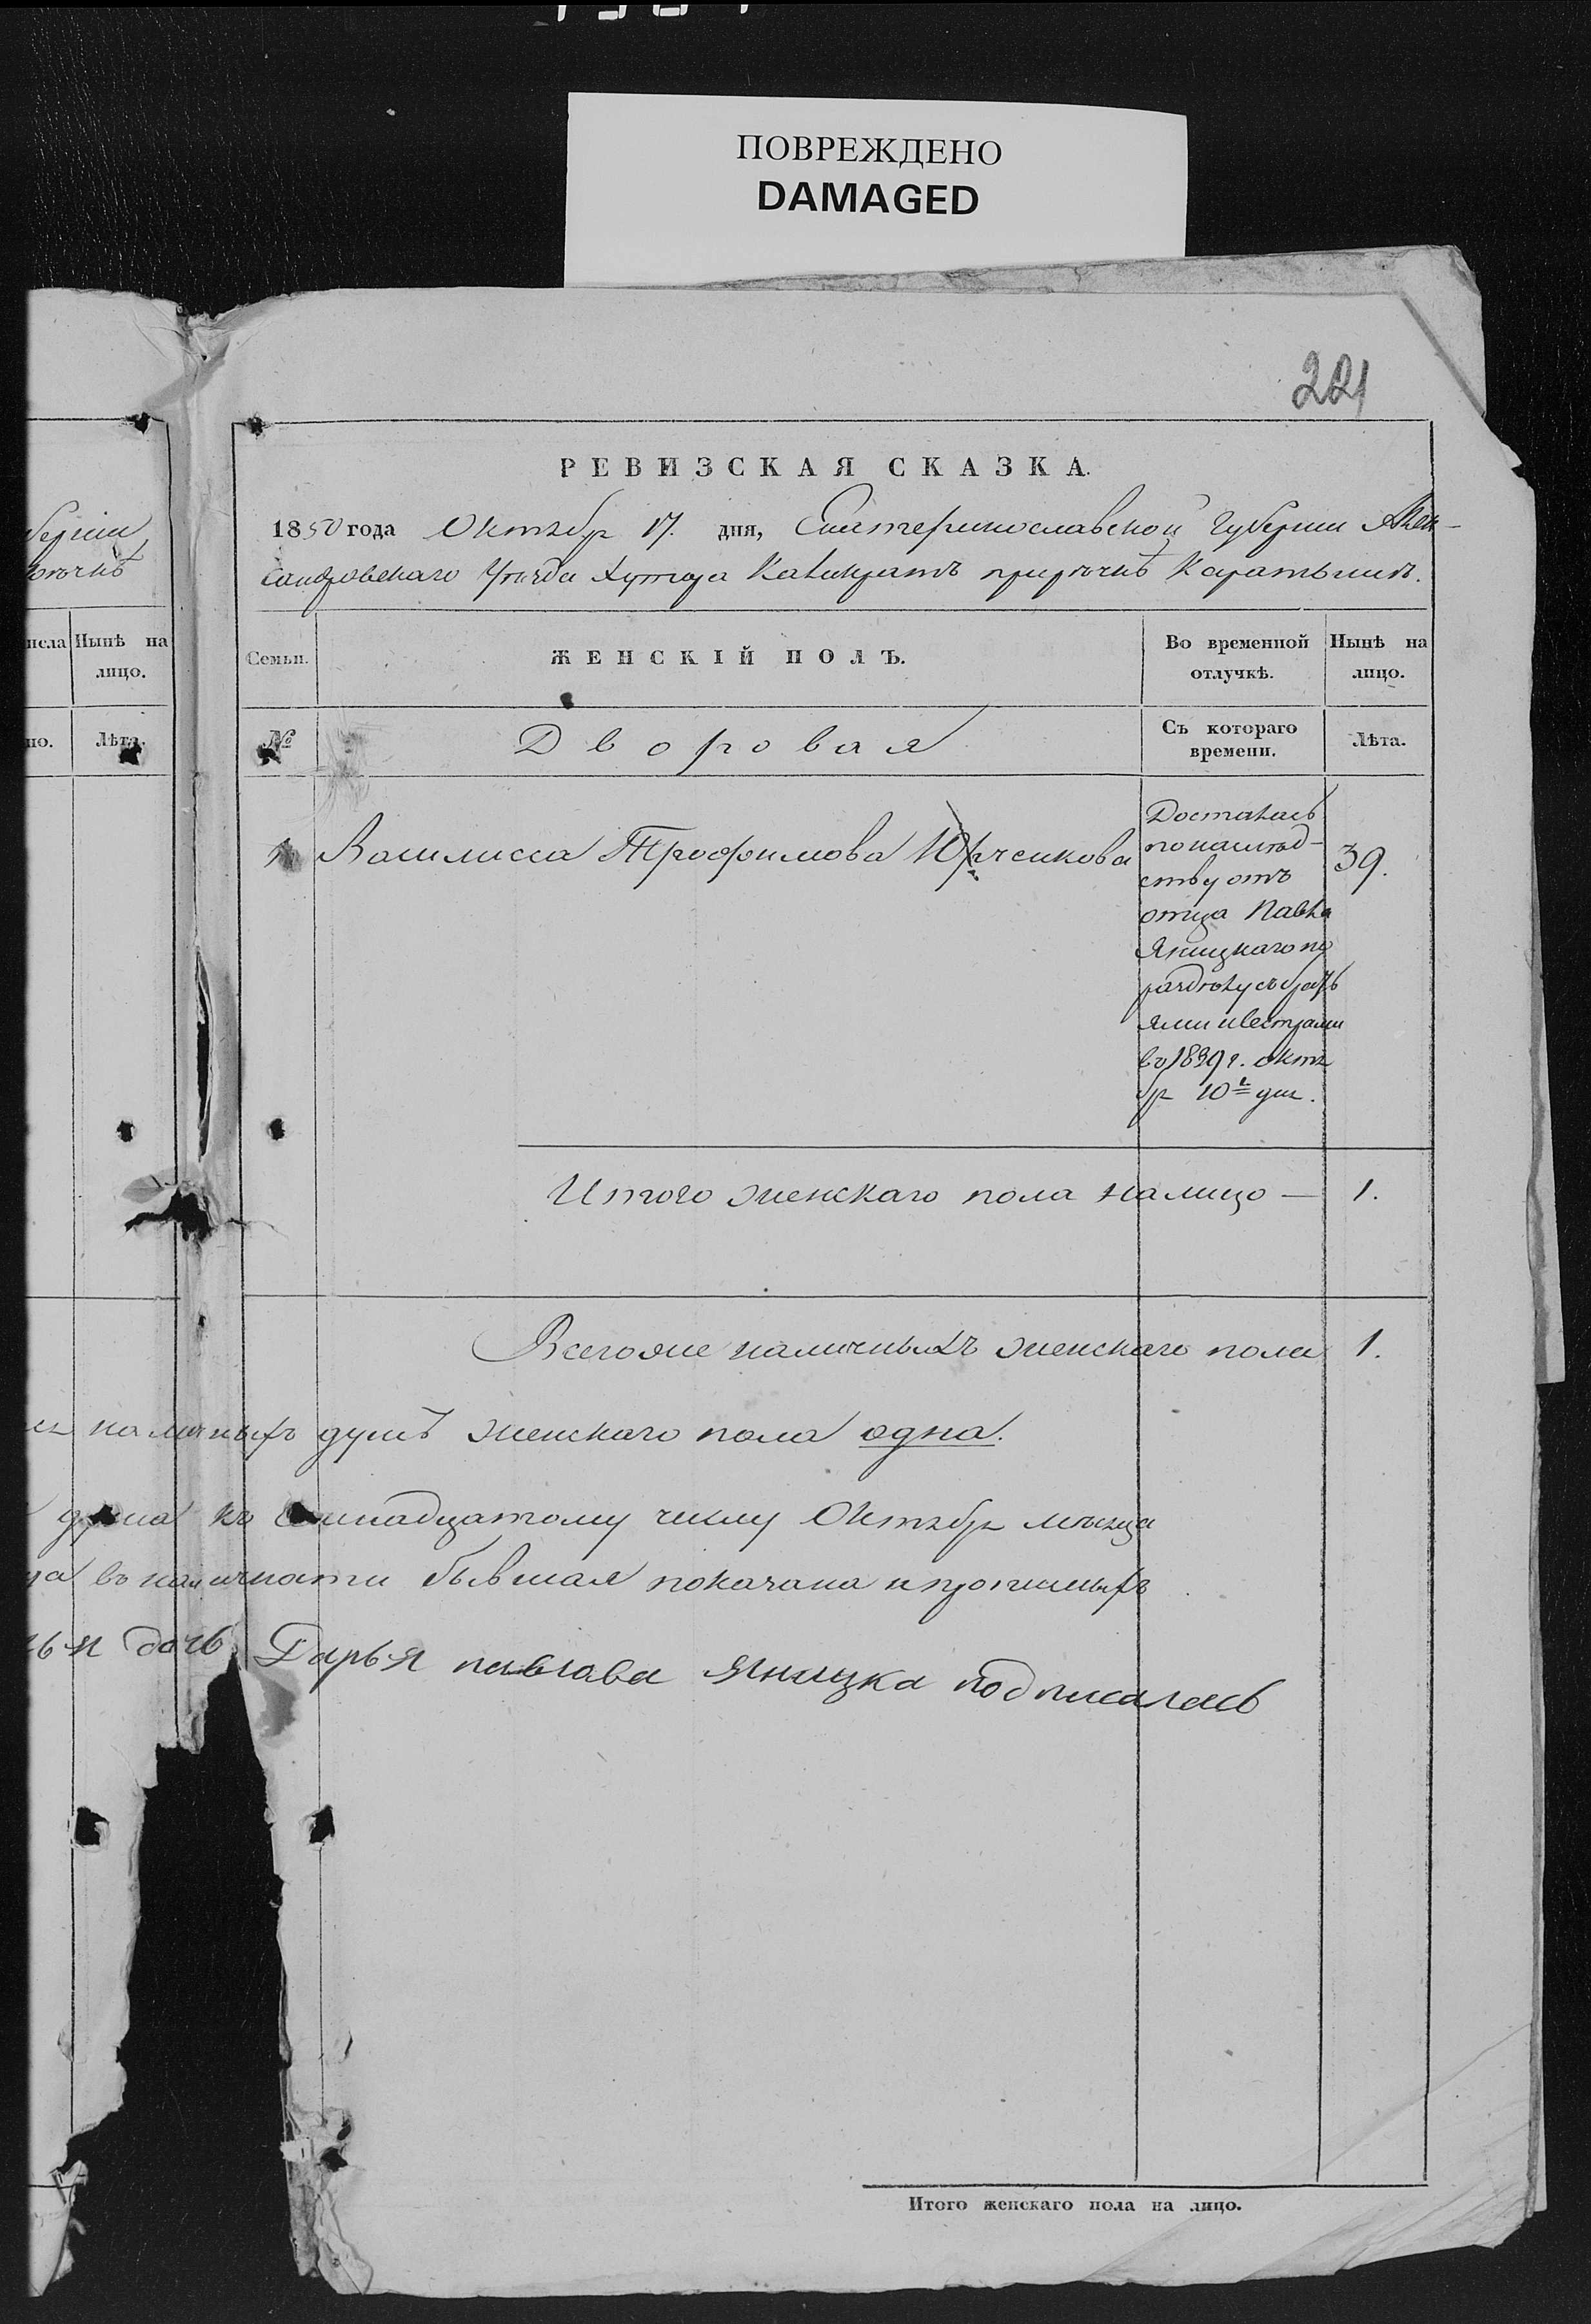 ПОВРЕЖДЕНО
DAMAGED
221
РЕВИЗСКАЯ СКАЗКА.
1850 года Октября 17. дня, Екатеринославской Губернии Алек-
сандровскаго Уѣзда Хутора при рѣчкѣ
Семьи.
ЖЕНСКІЙ ПОЛЪ.
Во временной отлучкѣ.
Нынѣ на лицо.
№
Дворовая
Съ котораго времени.
Лѣта.
1 Василисса Трофимова Юрченкова
39.
Досталась
по наслѣд-
ству отъ
отца Павла
Яницкаго по
раздѣлу съ брать
ями и сестрами
въ 1839 г. октя
бря 10 дня.
Итого женскаго пола на лицо — 1.
Всего же наличныхъ женскаго пола 1.
наличныхъ душъ женскаго пола одна.
душа къ семнадцатому числу Октября мѣсяца
въ наличности бывшая показана и прописныхъ
дочь Дарья павлова Яницка подписалась
Итого женскаго пола на лицо.
Нынѣ на
лицо.
Лѣта.